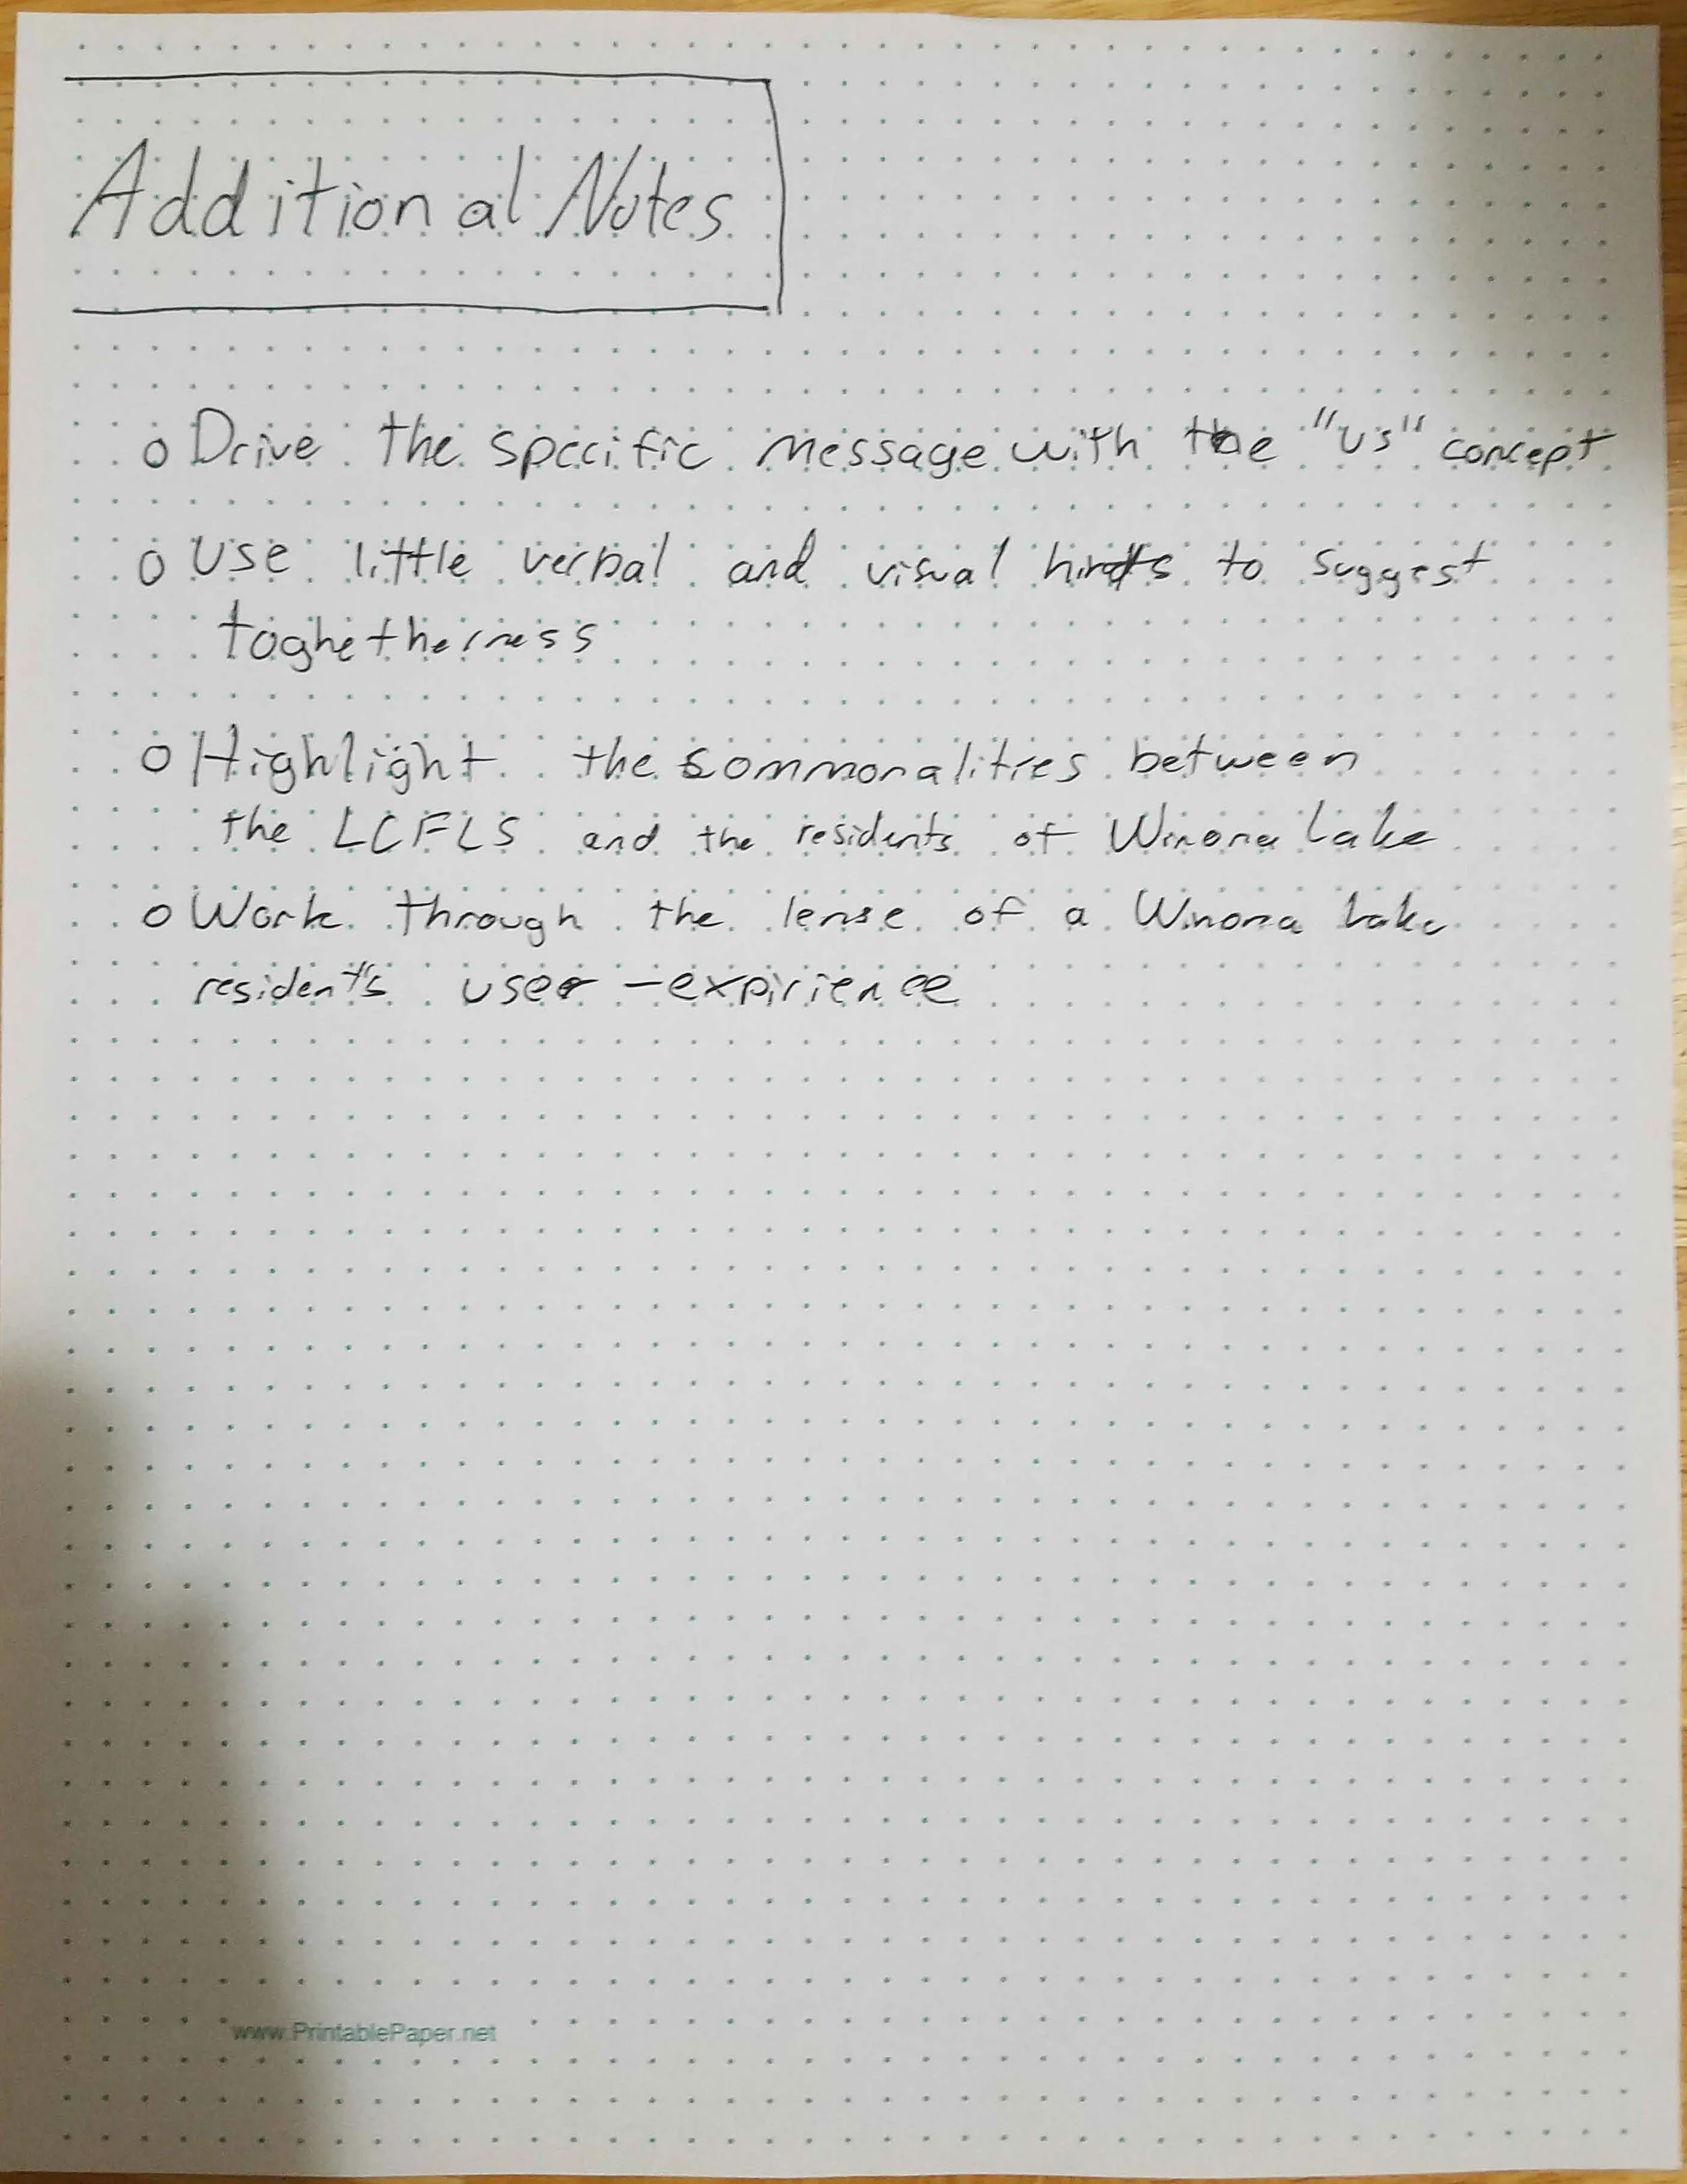 Additional Notes
o Drive the specific message with the "us" concept
o Use little verbal and visual hints to suggest
toghetherness
o Highlight the commonalities between
the LCFLS and the residents of Winona Lake
o Work through the lense of a Winona Lake
resident's user-expirience
www.PrintablePaper.net